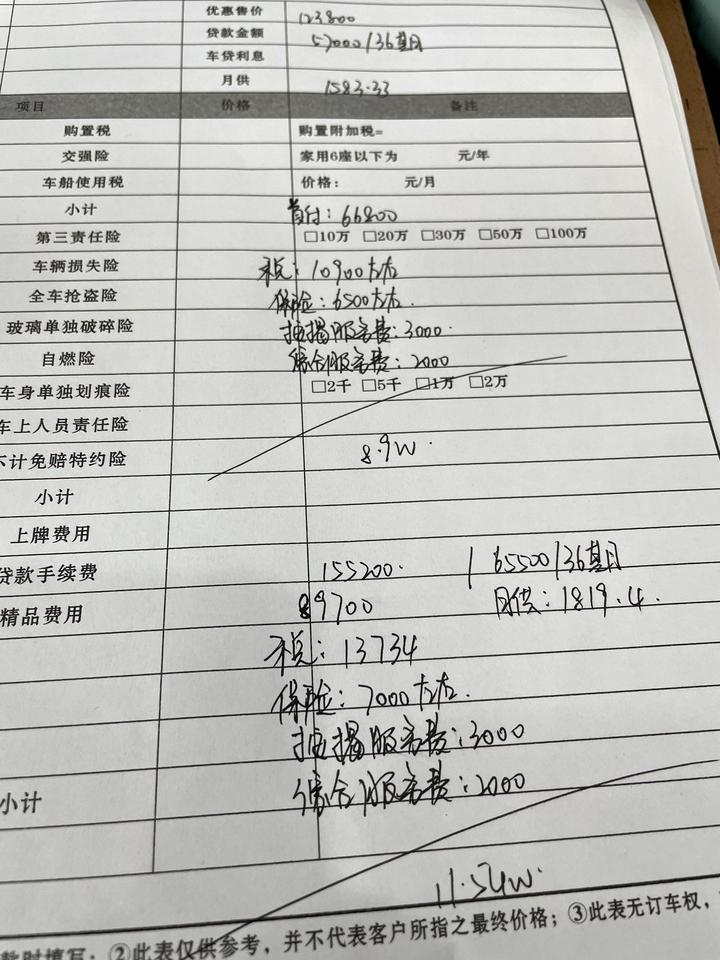 优惠售价 123800
贷款金额 57000/36期
车贷利息
月供 1583.33
项目 价格 备注
购置税 购置附加税=
交强险 家用6座以下为 元/年
车船使用税 价格: 元/月
小计 首付:66800
第三责任险 □10万 □20万 □30万 □50万 □100万
车辆损失险 税:10900左右
全车抢盗险 保险:6500左右.
玻璃单独破碎险 按揭服务费:3000.
自燃险 综合服务费:2000
车身单独划痕险 □2千 □5千 □1万 □2万
车上人员责任险
不计免赔特约险 8.9W.
小计
上牌费用
贷款手续费 155200. / 65500/36期
精品费用 89700 月供:1819.4.
税:13734
保险:7000左右.
按揭服务费:3000
小计 综合服务费:2000
11.54W.
款时填写;②此表仅供参考,并不代表客户所指之最终价格;③此表无订车权,